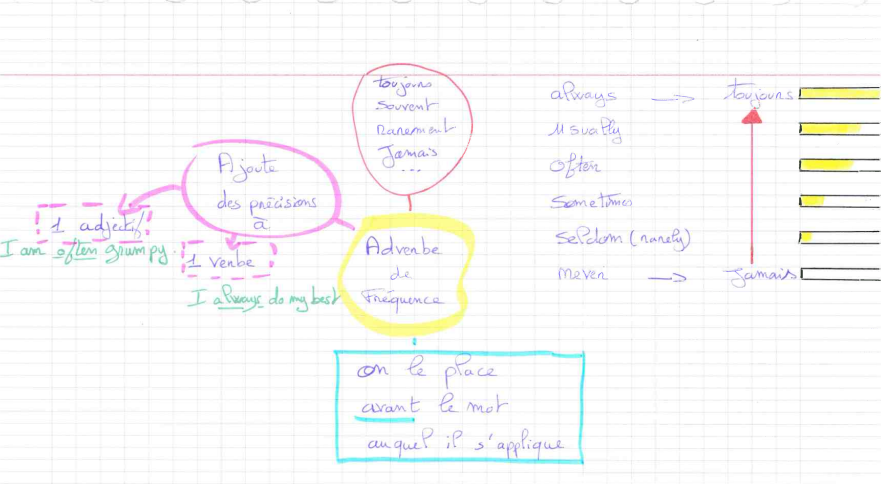 toujours
souvent
rarement
Jamais
...
Ajoute
des précisions
à
1 adjectif
I am often grumpy
1 verbe
I always do my best
Adverbe
de
Fréquence
on le place
avant le mot
auquel il s'applique
always → toujours
usually
often
sometimes
seldom (rarely)
never → Jamais